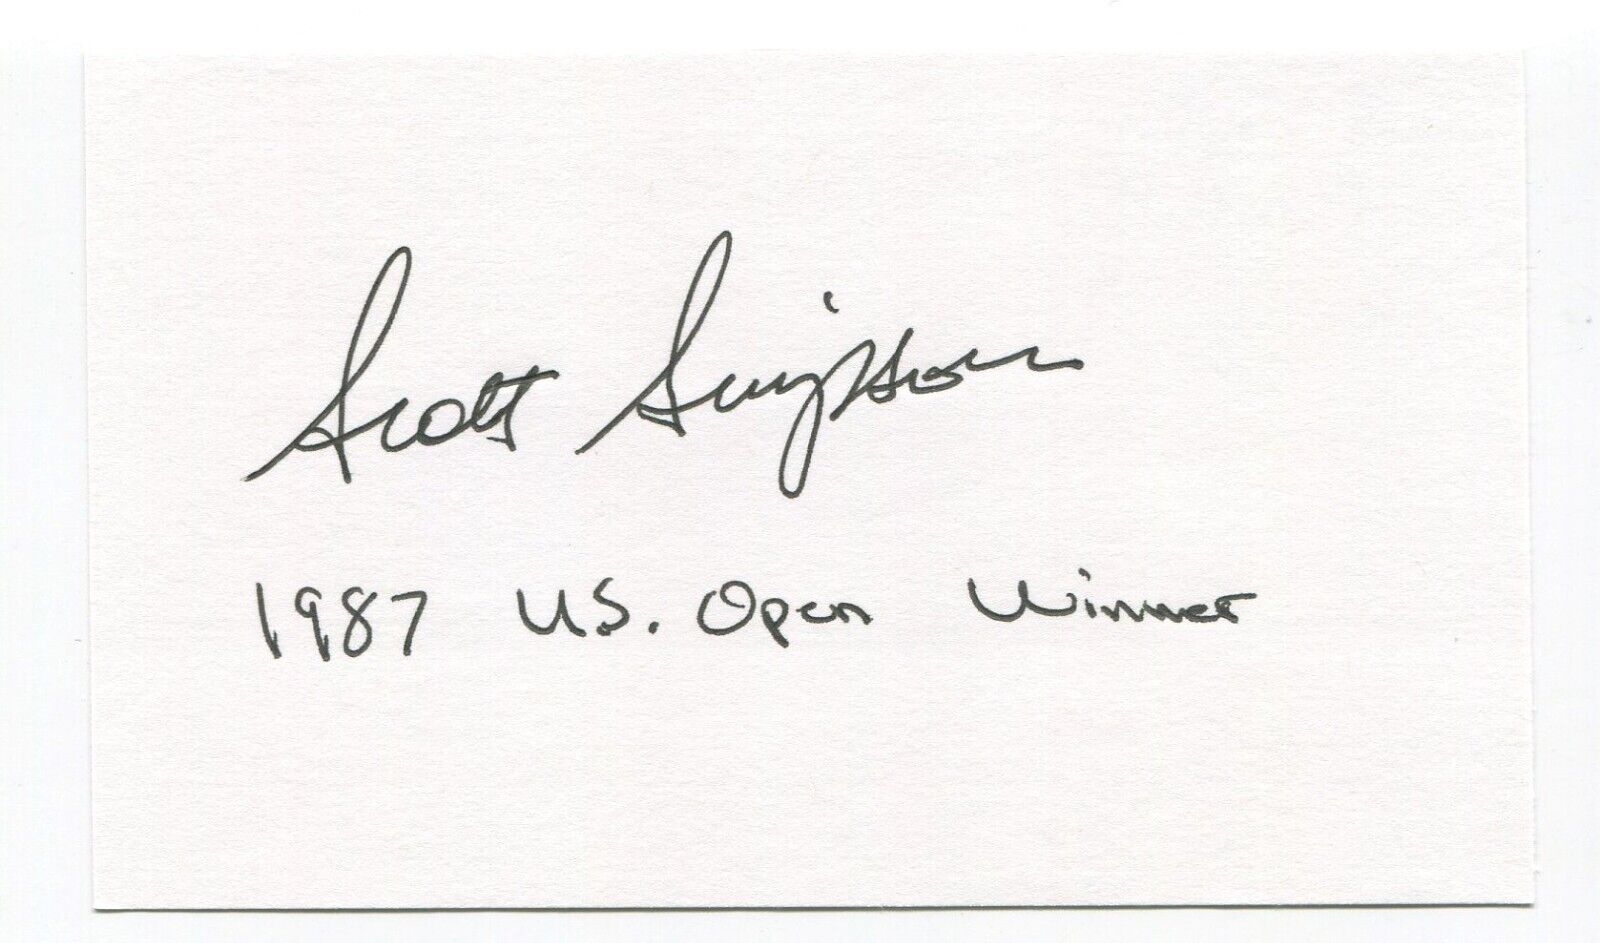 Scott Simpson
1987 U.S. Open Winner